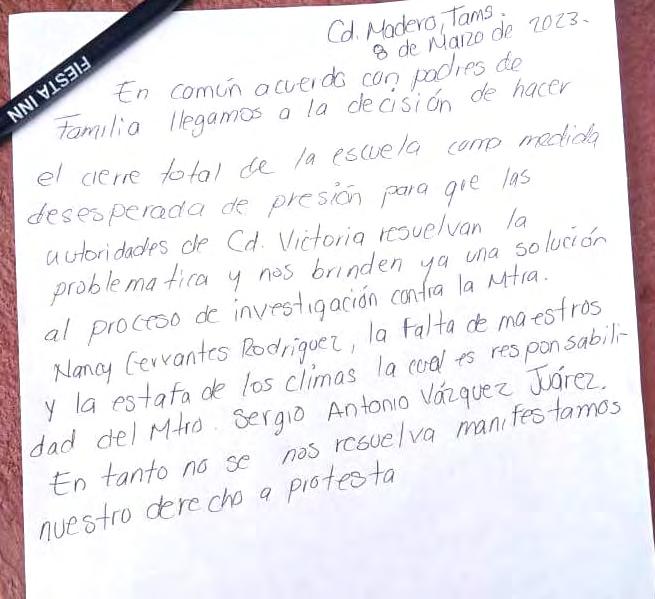 FIESTA INN
Cd. Madero, Tams.
8 de Marzo de 2023.
En común acuerdo con padres de
Familia llegamos a la decisión de hacer
el cierre total de la escuela como medida
desesperada de presión para que las
autoridades de Cd. Victoria resuelvan la
problematica y nos brinden ya una solución
al proceso de investigación contra la Mtra.
Nancy Cervantes Rodríguez, la falta de maestros
y la estafa de los climas la cual es responsabili-
dad del Mtro. Sergio Antonio Vázquez Juárez.
En tanto no se nos resuelva manifestamos
nuestro derecho a protesta